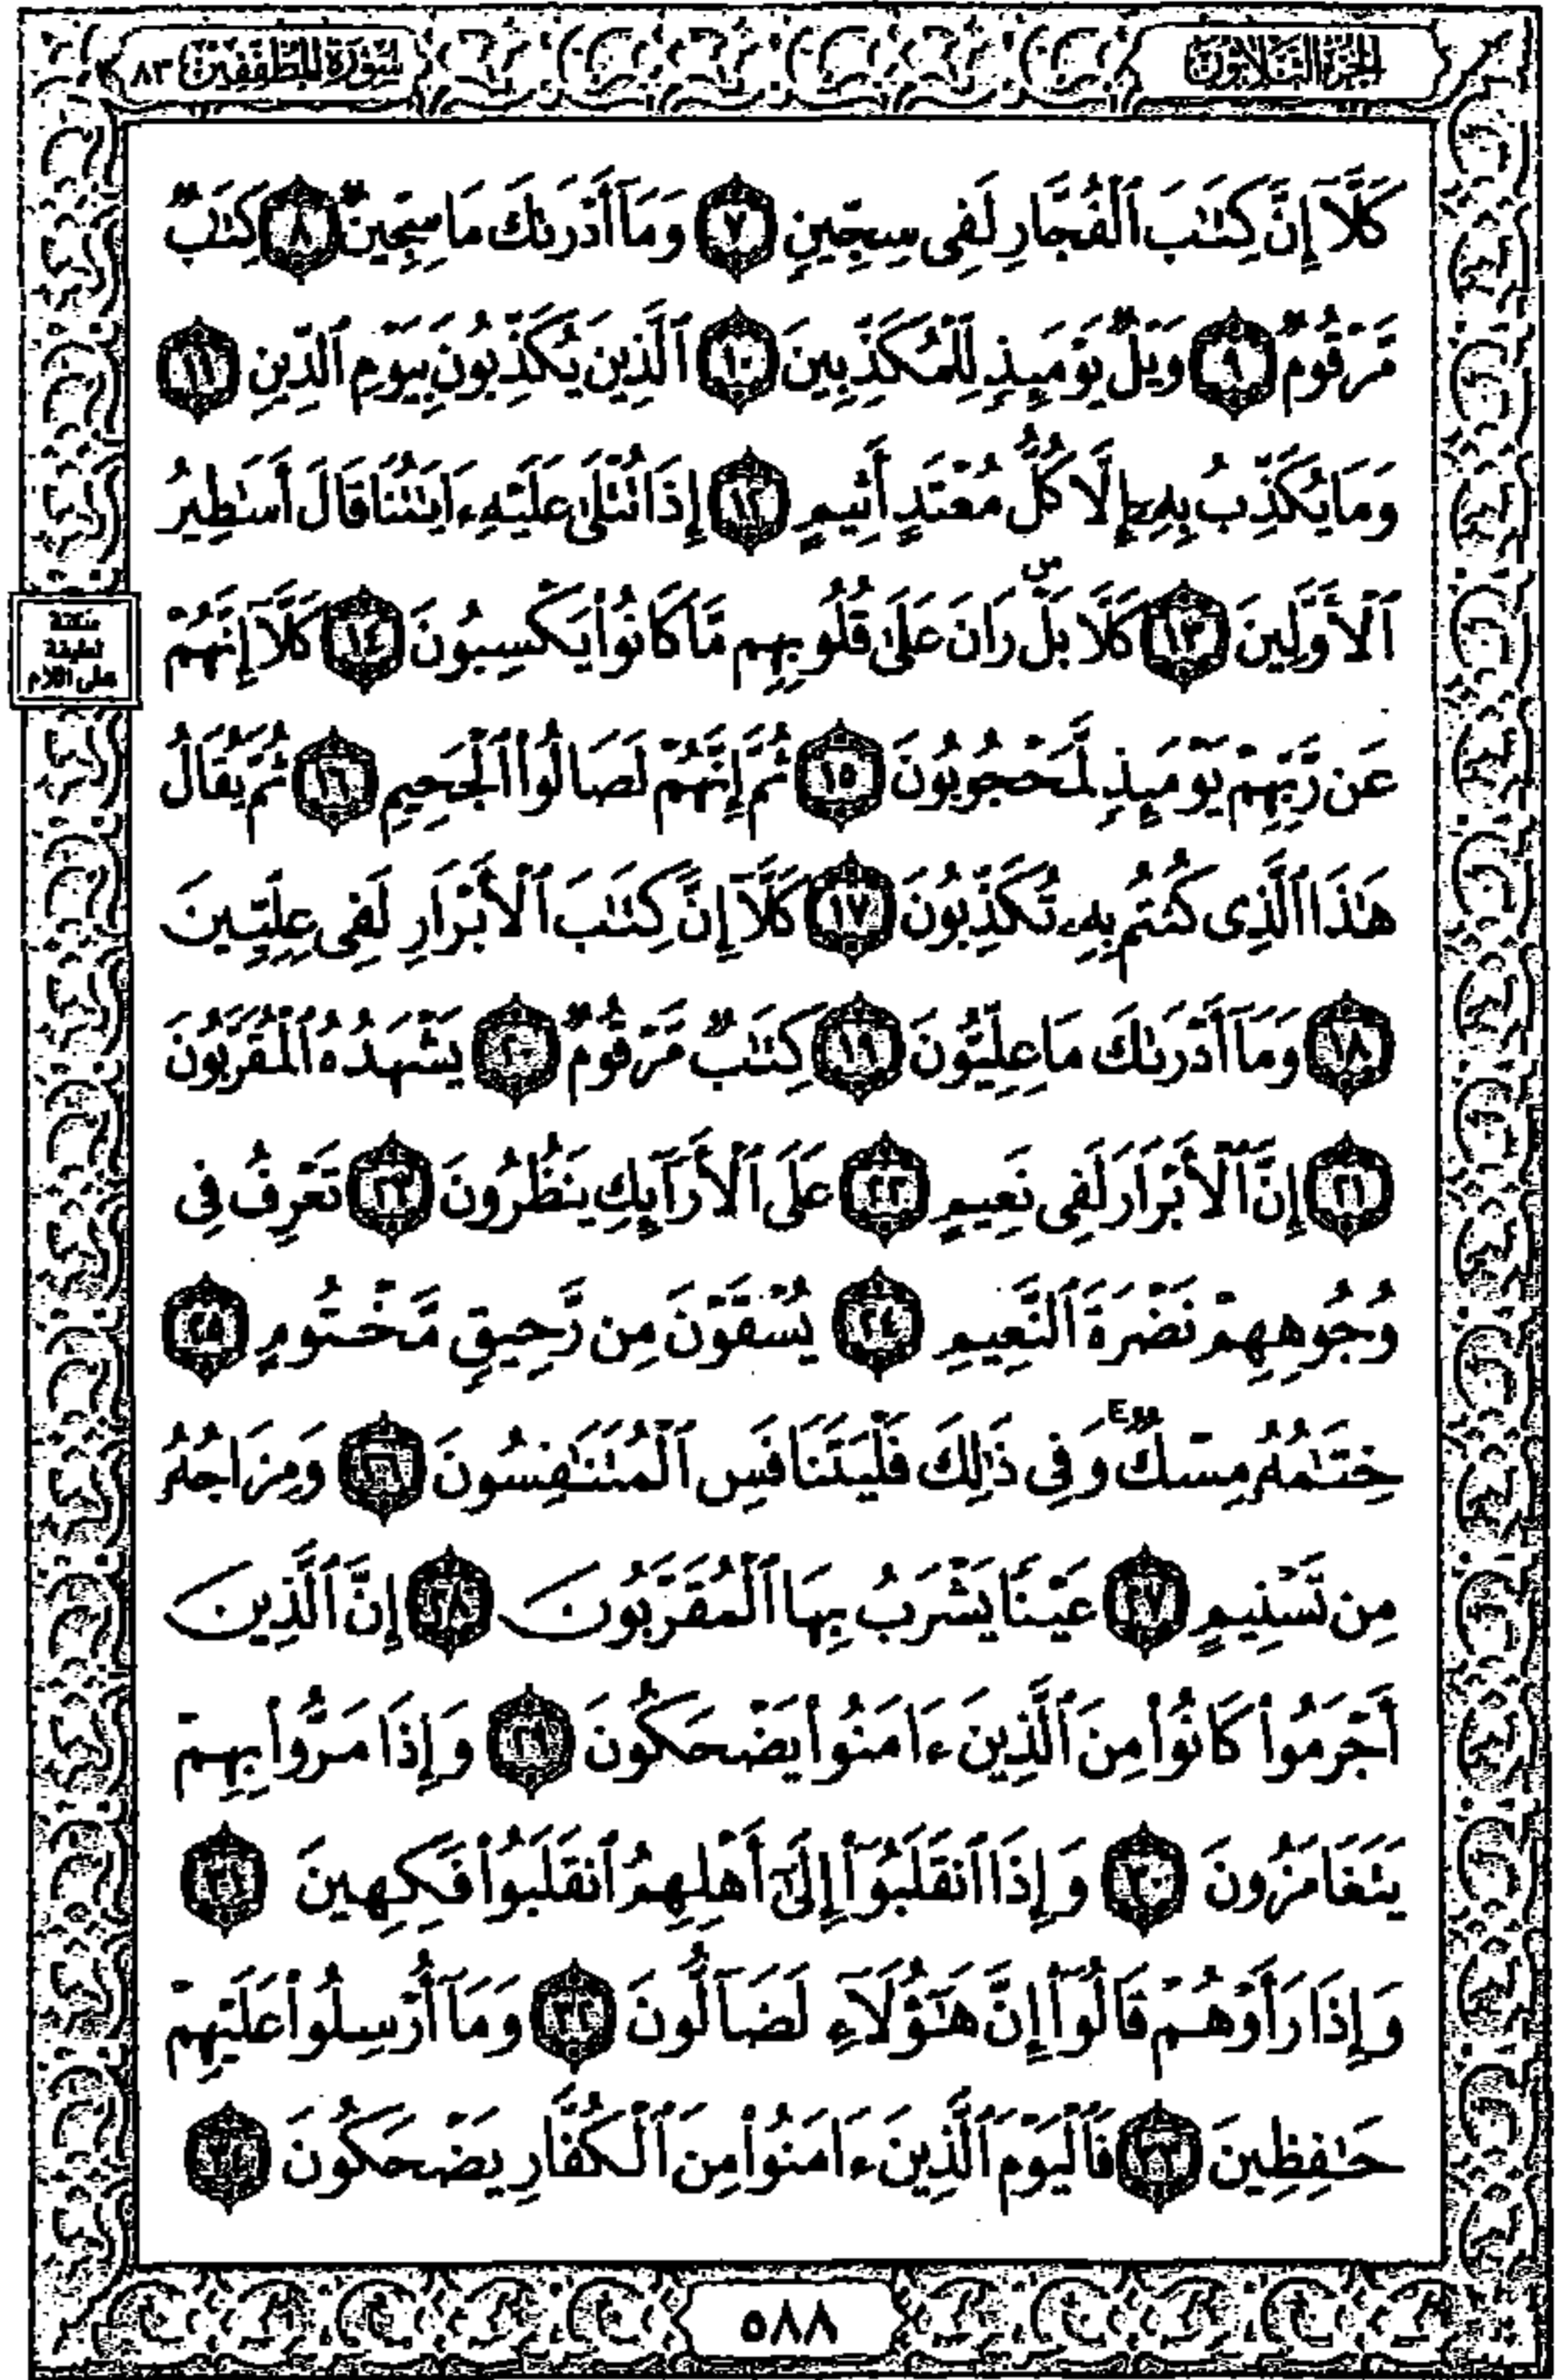 الجزء الثلاثون
سورة المطففين ٨٣
كَلَّآ إِنَّ كِتَٰبَ ٱلْفُجَّارِ لَفِى سِجِّينٍ ٧ وَمَآ أَدْرَىٰكَ مَا سِجِّينٌ ٨ كِتَٰبٌ
مَّرْقُومٌ ٩ وَيْلٌ يَوْمَئِذٍ لِّلْمُكَذِّبِينَ ١٠ ٱلَّذِينَ يُكَذِّبُونَ بِيَوْمِ ٱلدِّينِ ١١
وَمَا يُكَذِّبُ بِهِۦٓ إِلَّا كُلُّ مُعْتَدٍ أَثِيمٍ ١٢ إِذَا تُتْلَىٰ عَلَيْهِ ءَايَٰتُنَا قَالَ أَسَٰطِيرُ
ٱلْأَوَّلِينَ ١٣ كَلَّا بَلْ ۜ رَانَ عَلَىٰ قُلُوبِهِم مَّا كَانُوا۟ يَكْسِبُونَ ١٤ كَلَّآ إِنَّهُمْ
سكتة
لطيفة
على اللام
عَن رَّبِّهِمْ يَوْمَئِذٍ لَّمَحْجُوبُونَ ١٥ ثُمَّ إِنَّهُمْ لَصَالُوا۟ ٱلْجَحِيمِ ١٦ ثُمَّ يُقَالُ
هَٰذَا ٱلَّذِى كُنتُم بِهِۦ تُكَذِّبُونَ ١٧ كَلَّآ إِنَّ كِتَٰبَ ٱلْأَبْرَارِ لَفِى عِلِّيِّينَ
١٨ وَمَآ أَدْرَىٰكَ مَا عِلِّيُّونَ ١٩ كِتَٰبٌ مَّرْقُومٌ ٢٠ يَشْهَدُهُ ٱلْمُقَرَّبُونَ
٢١ إِنَّ ٱلْأَبْرَارَ لَفِى نَعِيمٍ ٢٢ عَلَى ٱلْأَرَآئِكِ يَنظُرُونَ ٢٣ تَعْرِفُ فِى
وُجُوهِهِمْ نَضْرَةَ ٱلنَّعِيمِ ٢٤ يُسْقَوْنَ مِن رَّحِيقٍ مَّخْتُومٍ ٢٥
خِتَٰمُهُۥ مِسْكٌ ۚ وَفِى ذَٰلِكَ فَلْيَتَنَافَسِ ٱلْمُتَنَٰفِسُونَ ٢٦ وَمِزَاجُهُۥ
مِن تَسْنِيمٍ ٢٧ عَيْنًا يَشْرَبُ بِهَا ٱلْمُقَرَّبُونَ ٢٨ إِنَّ ٱلَّذِينَ
أَجْرَمُوا۟ كَانُوا۟ مِنَ ٱلَّذِينَ ءَامَنُوا۟ يَضْحَكُونَ ٢٩ وَإِذَا مَرُّوا۟ بِهِمْ
يَتَغَامَزُونَ ٣٠ وَإِذَا ٱنقَلَبُوٓا۟ إِلَىٰٓ أَهْلِهِمُ ٱنقَلَبُوا۟ فَكِهِينَ ٣١
وَإِذَا رَأَوْهُمْ قَالُوٓا۟ إِنَّ هَٰٓؤُلَآءِ لَضَآلُّونَ ٣٢ وَمَآ أُرْسِلُوا۟ عَلَيْهِمْ
حَٰفِظِينَ ٣٣ فَٱلْيَوْمَ ٱلَّذِينَ ءَامَنُوا۟ مِنَ ٱلْكُفَّارِ يَضْحَكُونَ ٣٤
٥٨٨